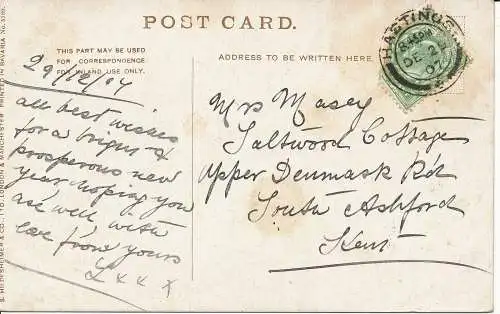 POST CARD.
THIS PART MAY BE USED
FOR CORRESPONDENCE
FOR INLAND USE ONLY.
ADDRESS TO BE WRITTEN HERE.
HASTINGS
DE 2
07
29/12/07
all best wishes
for a bright &
prosperous new
year hoping you
are well with
love from yours
L x x x
Mrs Masey
Saltwood Cottage
Upper Denmark Rd
South Ashford
Kent
S. HILDESHEIMER & CO., LTD. LONDON & MANCHESTER. PRINTED IN BAVARIA No.